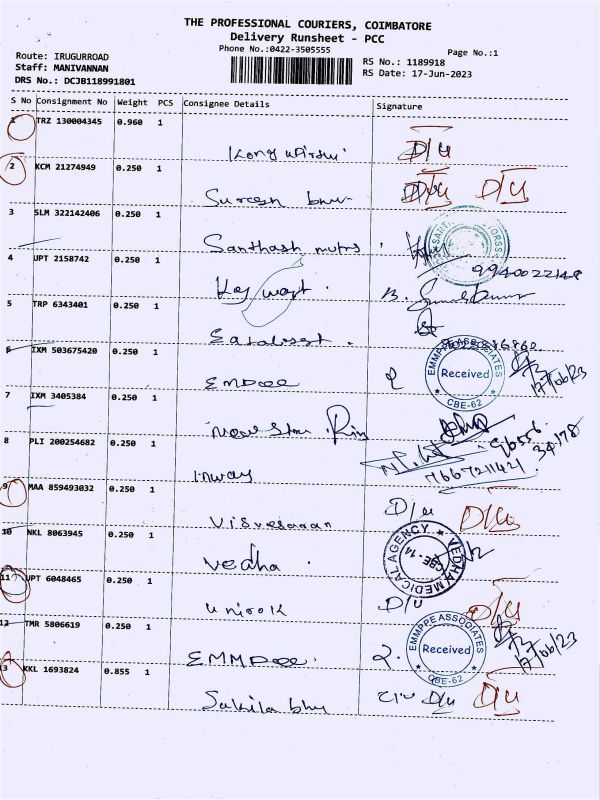 THE PROFESSIONAL COURIERS, COIMBATORE
Delivery Runsheet - PCC
Phone No.:0422-3505555
Page No.:1
Route: IRUGURROAD
Staff: MANIVANNAN
DRS No.: DCJB118991801
RS No.: 1189918
RS Date: 17-Jun-2023
S No Consignment No Weight PCS Consignee Details Signature
1 TRZ 130004345 0.960 1
D/u
2 KCM 21274949 0.250 1
Suresh D/u D/u
3 SLM 322142406 0.250 1
Santhash
9940022148
4 UPT 2158742 0.250 1
Key
5 TRP 6343401 0.250 1
6 IXM 503675420 0.250 1
EMMPPE ASSOCIATES
Received
CBE-62
17/06/23
7 IXM 3405384 0.250 1
New Star
8 PLI 200254682 0.250 1
Inway 7667211421
9 MAA 859493032 0.250 1
Visvesaran D/u D/u
10 NKL 8063945 0.250 1
Vedha
VEDHA MEDICAL AGENCY
CBE-14
11 UPT 6048465 0.250 1
Unirok D/u D/u
12 TMR 5806619 0.250 1
EMMPPE ASSOCIATES
Received
CBE-62
17/06/23
13 KKL 1693824 0.855 1
Sakila D/u D/u